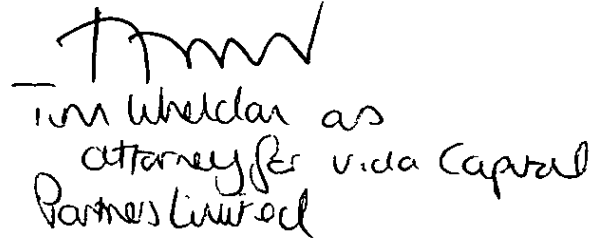 Tim Wheldon as
attorney for Vida Capital
Partners Limited